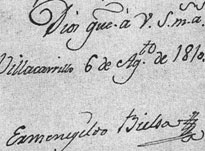 Dios gue. à V. S. m.s a.
Villacarrillo 6 de Ag.to de 1810.
Ermenegildo Bielsa